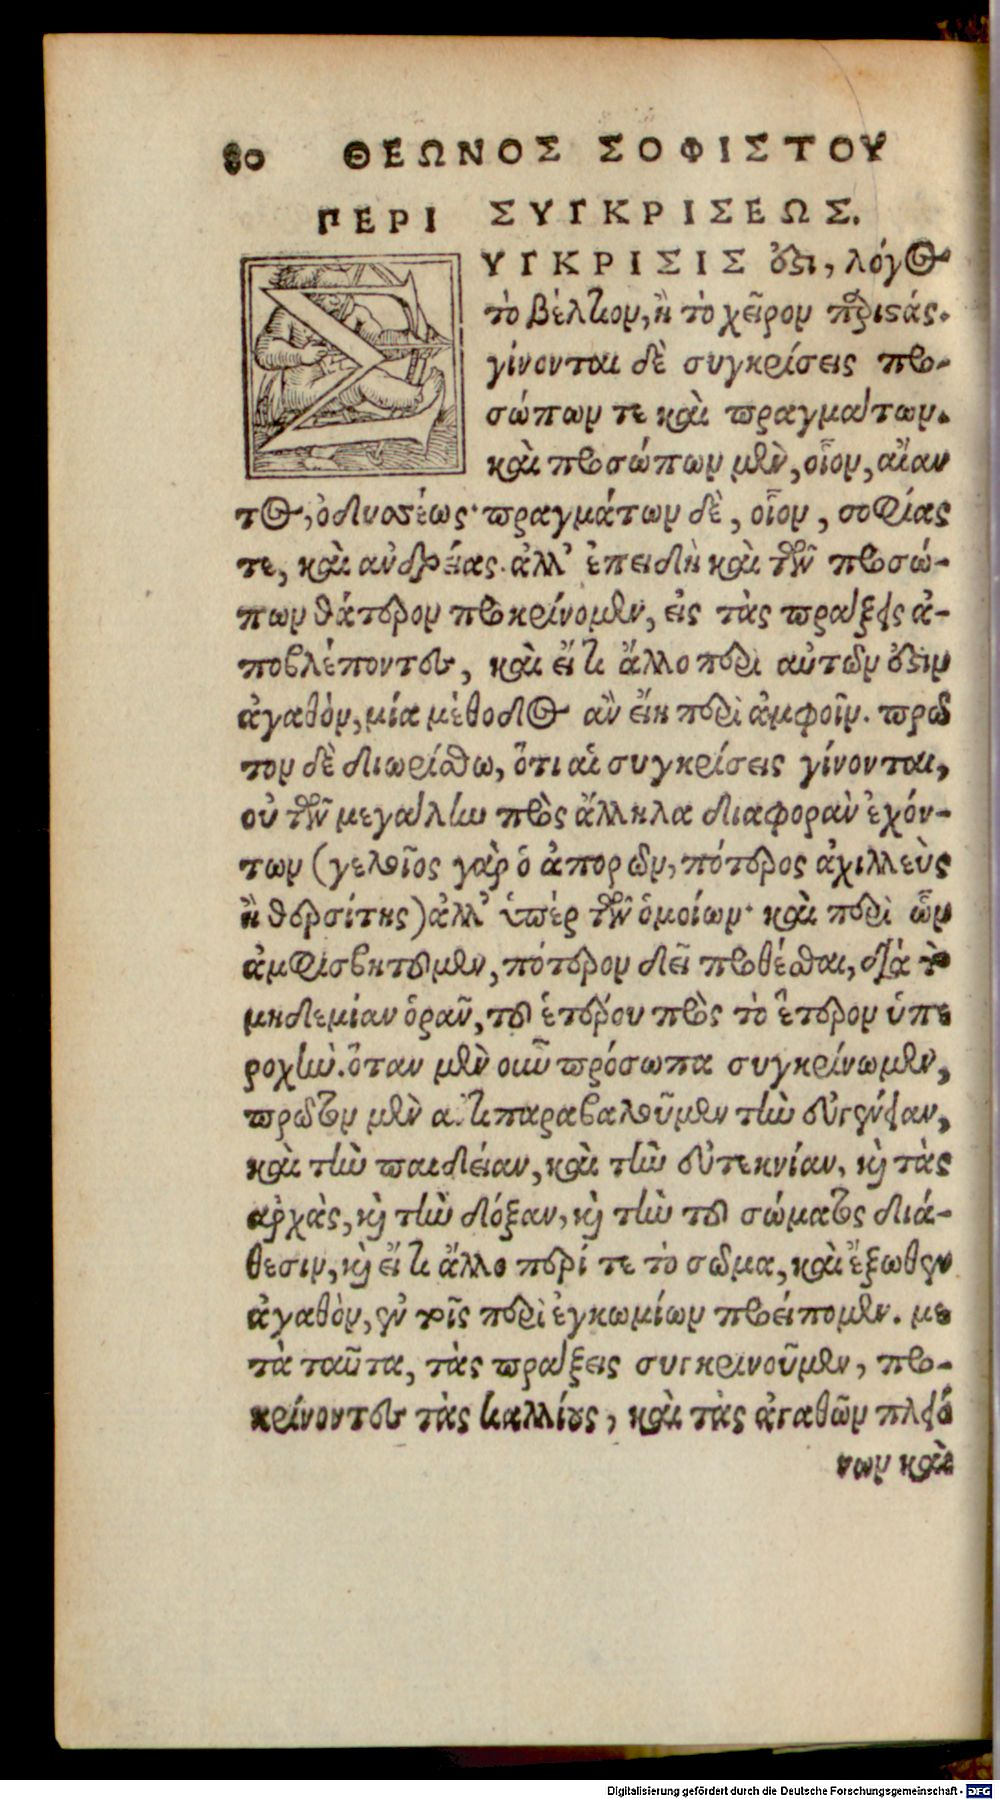 80 ΘΕΩΝΟΣ ΣΟΦΙΣΤΟΥ
ΠΕΡΙ ΣΥΓΚΡΙΣΕΩΣ.
ΣΥΓΚΡΙΣΙΣ ἐστι, λόγος
τὸ βέλτιον, ἢ τὸ χεῖρον παριστάς.
γίνονται δὲ συγκρίσεις προ-
σώπων τε καὶ πραγμάτων.
καὶ προσώπων μὲν, οἷον, αἴαν
τος, ὀδυσσέως· πραγμάτων δὲ, οἷον, σοφίας
τε, καὶ ανδρείας. ἀλλ' ἐπειδὴ καὶ τῶν προσώ-
πων θάτερον προκρίνομεν, εἰς τὰς πράξεις ἀ-
ποβλέποντες, καὶ εἴ τι ἄλλο περι αὐτῶν ἐστιν
ἀγαθὸν, μία μέθοδος ἂν εἴη περὶ ἀμφοῖν. πρῶ
τον δὲ διωρίσθω, ὅτι αἱ συγκρίσεις γίνονται,
οὐ τῶν μεγάλην πρὸς ἄλληλα διαφορὰν ἐχόν-
των (γελοῖος γὰρ ὁ ἀπορῶν, πότερος ἀχιλλεὺς
ἢ θερσίτης) ἀλλ' ὑπὲρ τῶν ὁμοίων· καὶ περὶ ὧν
ἀμφισβητοῦμεν, πότερον δεῖ προθέσθαι, διὰ τὸ
μηδεμίαν ὁρᾶν, τοῦ ἑτέρου πρὸς τὸ ἕτερον ὑπε
ροχήν. ὅταν μὲν οὖν πρόσωπα συγκρίνωμεν,
πρῶτον μὲν ἀντιπαραβαλοῦμεν τὴν εὐγένειαν,
καὶ τὴν παιδείαν, καὶ τὴν εὐτεκνίαν, καὶ τὰς
ἀρχὰς, καὶ τὴν δόξαν, καὶ τὴν τοῦ σώματος διά-
θεσιν, καὶ εἴ τι ἄλλο περί τε τὸ σῶμα, καὶ ἔξωθεν
ἀγαθὸν, ἐν τοῖς περὶ ἐγκωμίων προείπομεν. με
τὰ ταῦτα, τὰς πράξεις συγκρινοῦμεν, προ-
κρίνοντες τὰς καλλίους, καὶ τὰς ἀγαθῶν πλειό
νων καὶ
Digitalisierung gefördert durch die Deutsche Forschungsgemeinschaft - DFG